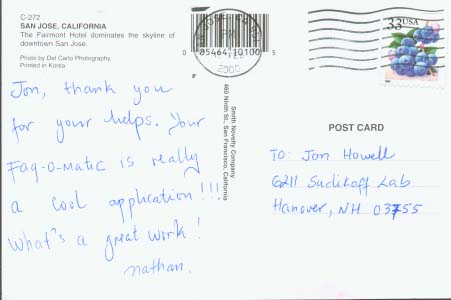 C-272
SAN JOSE, CALIFORNIA
The Fairmont Hotel dominates the skyline of
downtown San Jose.
Photo by Del Carlo Photography
Printed in Korea
0 85464 10100 5
2000
33 USA
Jon, thank you
for your helps. Your
Faq-O-Matic is really
a cool application!!!
What's a great work!
nathan.
Smith Novelty Company
460 Ninth St., San Francisco, California
POST CARD
TO: Jon Howell
6211 Sudikoff Lab
Hanover, NH 03755